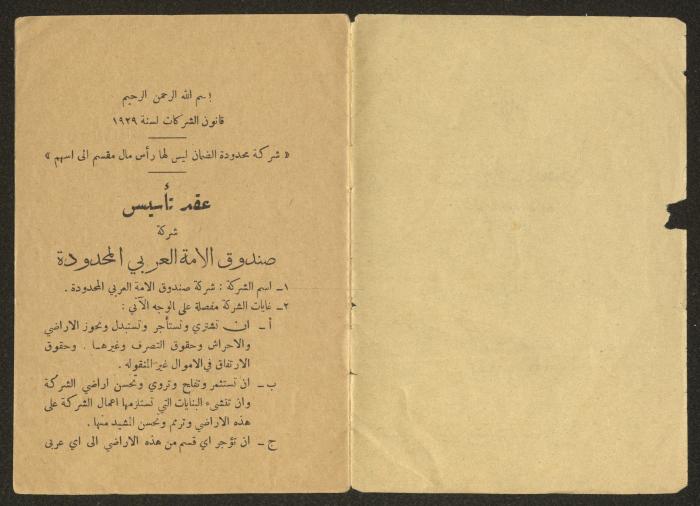 بسم الله الرحمن الرحيم
قانون الشركات لسنة ١٩٢٩
« شركة محدودة الضمان ليس لها رأس مال مقسم الى اسهم »
عقد تأسيس
شركة
صندوق الامة العربي المحدودة
١ــ اسم الشركة : شركة صندوق الامة العربي المحدودة .
٢ــ غايات الشركة مفصلة على الوجه الآتي :
أ ــ ان تشتري وتستأجر وتستبدل وتحوز الاراضي
والاحراش وحقوق التصرف وغيرهـا . وحقوق
الارتفاق في الاموال غير المنقوله .
ب ــ ان تستثمر وتفلح وتروي وتحسن اراضي الشركة
وان تنشىء البنايات التي تستلزمها اعمال الشركة على
هذه الاراضي وترمم وتحسن المشيد منها .
ج ــ ان تؤجر اي قسم من هذه الاراضي الى اي عربى